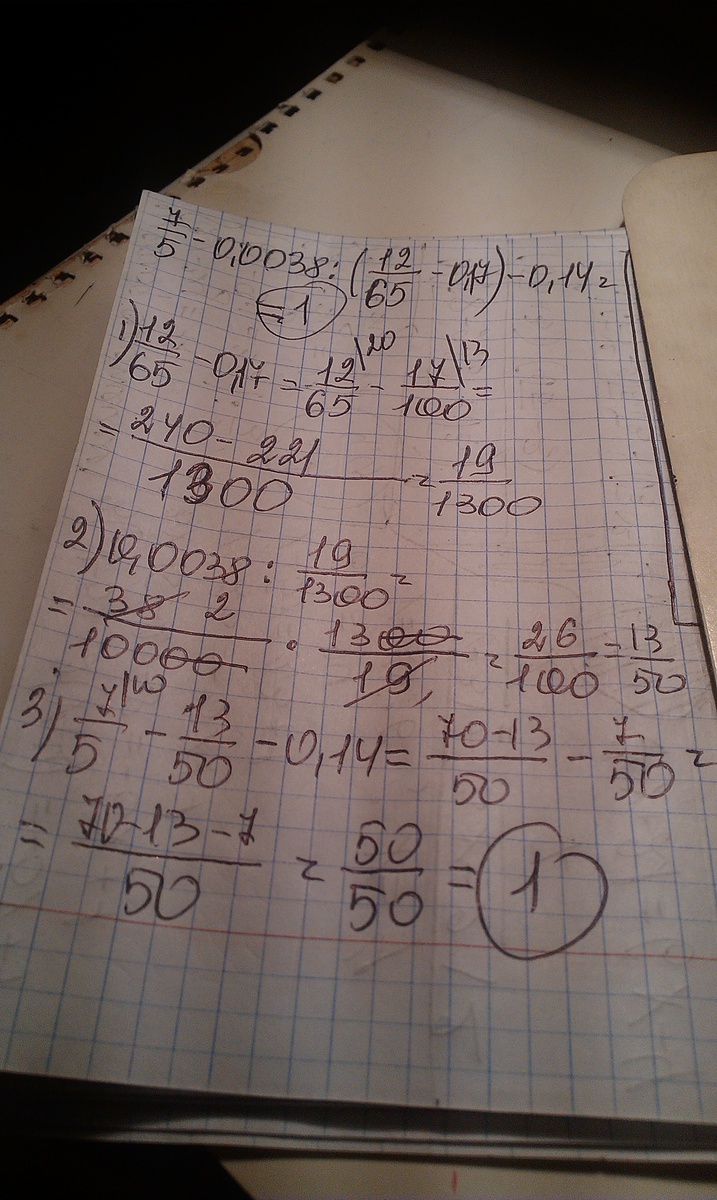 7/5 - 0,0038 : (12/65 - 0,17) - 0,14 =
= 1
1) 12/65 - 0,17 = 12/65 \20 - 17/100 \13 =
= 240 - 221/1300 = 19/1300
2) 0,0038 : 19/1300 =
= 38 2/10000 · 1300/19, = 26/100 = 13/50
3) 7/5 \10 - 13/50 - 0,14 = 70-13/50 - 7/50 =
= 70-13-7/50 = 50/50 = 1